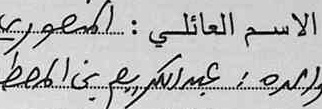 الاسم العائلي : المنصوري
والده : عبد الكريم بن